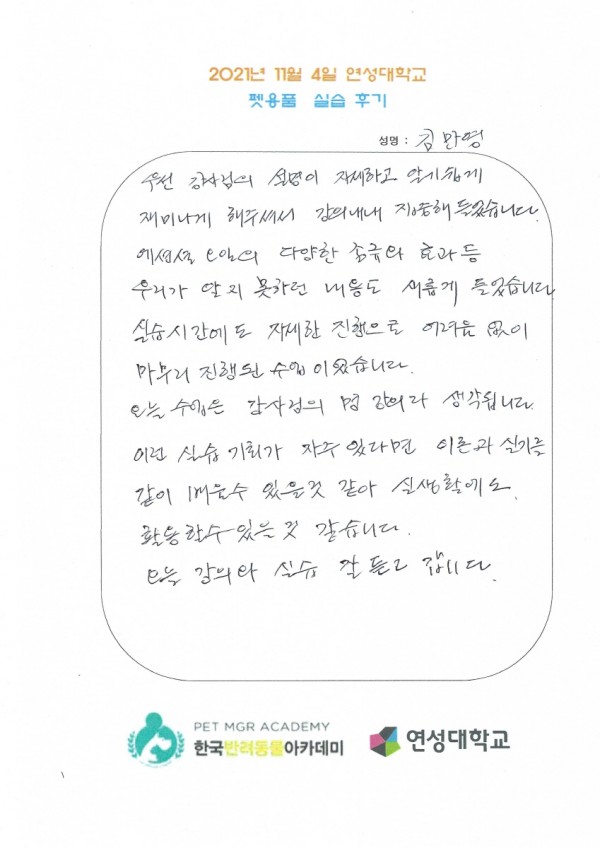 2021년 11월 4일 연성대학교
펫용품 실습 후기
성명 : 김만영
우선 강사님의 설명이 자세하고 알기쉽게
재미나게 해주셔서 강의내내 집중해 들었습니다.
에센셜 오일의 다양한 종류와 효과 등
우리가 알지 못하던 내용도 새롭게 들었습니다
실습시간에도 자세한 진행으로 어려움 없이
마무리 진행된 수업이었습니다.
오늘 수업은 강사님의 명 강의라 생각됩니다.
이런 실습 기회가 자주 있다면 이론과 실기를
같이 배울수 있을것 같아 실생활에도
활용할수 있을 것 같습니다.
오늘 강의와 실습 잘 듣고 갑니다.
PET MGR ACADEMY
한국반려동물아카데미
연성대학교